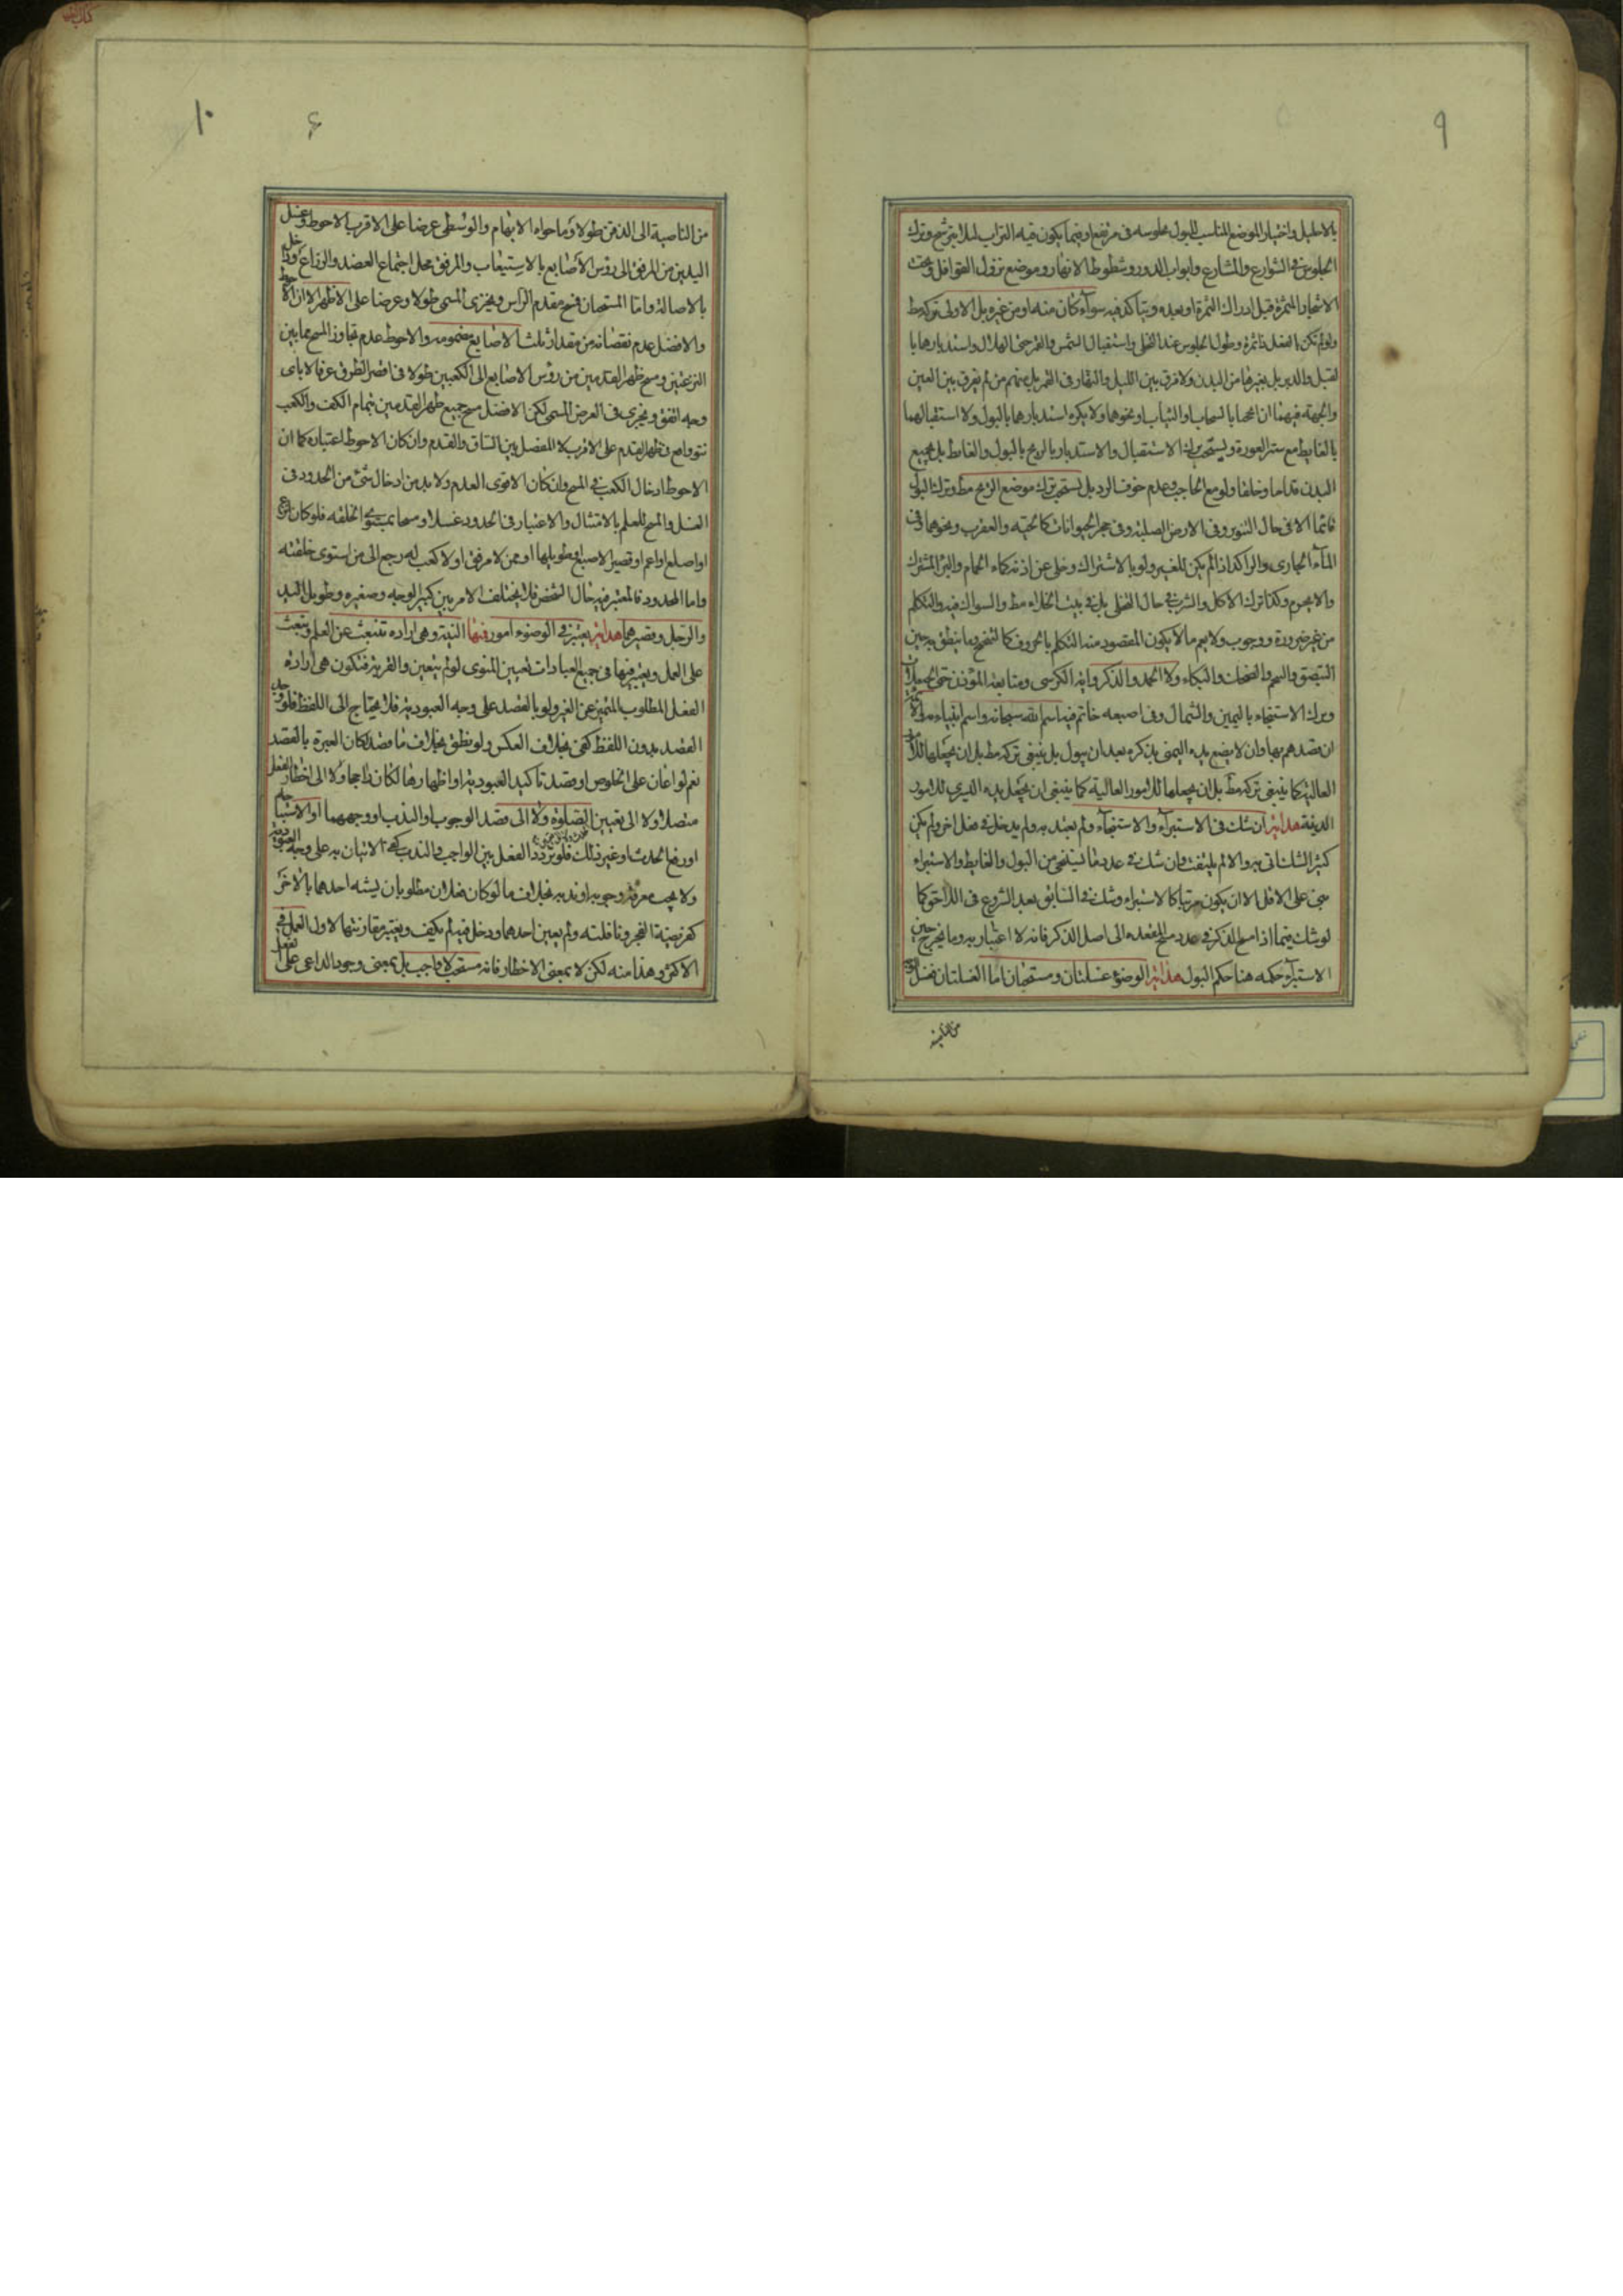 ٩
بالاحليل واختيار الموضع المناسب للبول بجلوسه فى مرتفع او فيما يكون فيه التراب لئلا يترشح وترك
الجلوس فى الشوارع والمشارع وابواب الدور وشطوط الانهار وموضع نزول القوافل وتحت
الاشجار المثمرة قبل ادراك الثمرة او بعده ويتاكد فيه سوآء كان منه او من غيره بل الاولى تركه مط
ولو لم تكن بالفعل ثاثمرة وطول الجلوس عند التخلى واستقبال الشمس والقمر حتى الهلال واستدبارها با
لقبل والدبر بل بغيرها من البدن ولا فرق بين الليل والنهار فى القمر بل منهم من لم يفرق بين العين
والجهة فيهما ان انمحصا بالسحاب او الثياب او نحوهما ولا يكره استدبارهما بالبول ولا استقبالهما
بالغايط مع ستر العورة ويستحب ترك الاستقبال والاستدبار بالريح بالبول والغايط بل بجميع
البدن قداما وخلفا ولو مع الحاجب وعدم خوف الرد بل يستحب ترك موضع الريح مط وترك البول
قائما الا فى حال التنوير وفى الارض الصلبة وفى حجر الحيوانات كالحية والعقرب ونحوهما وفى
المآء الجارى والراكد اذا لم يكن للغير ولو بالاشتراك وخلى عن اذنه كماء الحمام والبئر المشترك
والا يحرم وكذا ترك الاكل والشرب فى حال التخلى بل فى بيت الخلاء مط والسواك فيه والتكلم
من غير ضرورة ووجوب ولا يعم ما لا يكون المقصود منه التكلم بالحروف كالتنحنح وما ينطق به حين
التبصق والبهم والضحك والبكاء ولا الحمد والذكر واية الكرسى ومتابعة المؤذن حتى الحيعلات
وترك الاستنجاء باليمين والشمال وفى اصبعه خاتم فيه اسم الله سبحانه واسم انبياءه
ان قصدهم بها وان لا يضع يده اليمنى بذكره بعد ان يبول بل ينبغى تركه مط بل ان يجعلها للامور
العالية كما ينبغى تركه مط بل ان يجعلها للامور العالية كما ينبغى ان يجعل يده اليسرى للامور
الدنية هداية ان شك فى الاستبرآء والاستنجآء ولم يعتد به ولم يدخل فى فعل اخر ولم يكن
كثير الشك اتى به والا لم يلتفت وان شك فى عدد ما يستنجى من البول والغايط والاستبراء
بنى على الاقل الا ان يكون مرتبا كالاستبراء وشك فى السابق بعد الشروع فى اللاحق كما
لو شك فيما اذا مسح الذكر فى عدد مسح المقعده الى اصل الذكر فانه لا اعتبار به وما يخرج حين
الاستبرآء حكمه هنا حكم البول هداية الوضوء غسلتان ومستحان اما الغسلتان فغسل الوجه
من الناصية
١٠
من الناصية الى الذقن طولا وما حواه الابهام والوسطى عرضا على الاقرب الاحوط وغسل
اليدين من المرفق الى رؤس الاصابع بالاستيعاب والمرفق محل اجتماع العضد والذراع
بالاصالة واما المستحان فمسح مقدم الراس ويجزى المسمى طولا وعرضا على الاظهر الا ان الاحوط
والافضل عدم نقصانه من مقدار ثلث الاصابع مضمومه والاحوط عدم تجاوز المسح مما بين
النزعتين ومسح ظهر القدمين من رؤس الاصابع الى الكعبين طولا فى اقصر الطرق عرفا لا باى
وجه اتفق ويجزى فى العرض المسمى لكن الافضل مسح جميع ظهر القدمين بتمام الكف والكعب
نتو واقع فى ظهر القدم على الاقرب لا المفصل بين الساق والقدم وان كان الاحوط اعتباره كما ان
الاحوط ادخال الكعب فى المسح وان كان الاقوى العدم ولا بد من ادخال شئ من الحدود فى
الغسل والمسح للعلم بالامتثال والاعتبار فى الحدود غسلا ومسحا بمستوى الخلقه فلو كان انزع
او اصلع او اعم او قصير الاصبع او طويلها او ممن لا مرفق او لا كعب له رجع الى من استوى خلقته
واما المحدود فالمعتبر فيه حال الشخص فلا يختلف الامر بين كبير الوجه وصغيره وطويل اليد
والرجل وقصيرهما هداية يعتبر فى الوضوء امور فمنها النية وهى اراده تنبعث عن العلم وتبعث
على العمل ويعتبر فيها فى جميع العبادات تعيين المنوى لو لم يتعين والقربة فتكون هى ارادة
الفعل المطلوب المتميز عن الغير ولو بالقصد على وجه العبودية فلا يحتاج الى اللفظ فلو وجد
القصد بدون اللفظ كفى بخلاف العكس ولو نطق بخلاف ما قصد لكان العبرة بالقصد
نعم لو اعان على الخلوص او قصد تاكيد العبودية او اظهارها لكان راجحا ولا الى اخطار الفعل
متصلا ولا الى تعيين الصلوة ولا الى قصد الوجوب او الندب او وجههما او الاستباحه
او رفع الحدث او غير ذلك فلو تردد الفعل بين الواجب والندب كفى الاتيان به على وجه العبودية
ولا يجب معرفة وجوبه او ندبه بخلاف ما لو كان فعلان مطلوبان يشبه احدهما بالاخر
كفريضة الفجر ونافلته ولم يعين احدهما ودخل فيه لم يكف ويعتبر مقارنتها لاول العمل فى
الاكثر وهذا منه لكن لا بمعنى الاخطار فانه مستحب لا واجب بل بمعنى وجود الداعى على الفعل